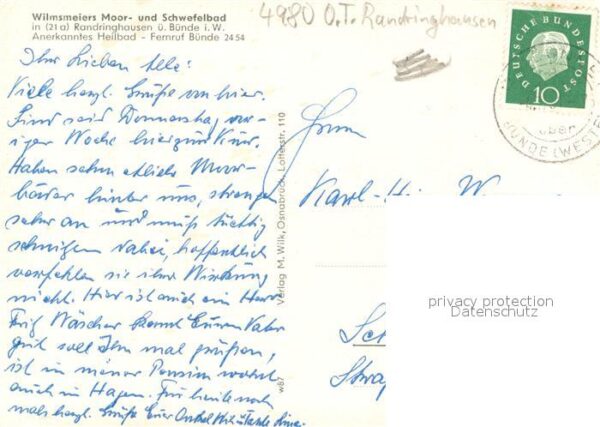 Wilmsmeiers Moor- und Schwefelbad
in (21a) Randringhausen ü. Bünde i. W.
Anerkanntes Heilbad - Fernruf Bünde 24 54
4980 O.T. Randringhausen
DEUTSCHE BUNDESPOST
10
über
BÜNDE (WESTF
Ihr Lieben alle:
Viele herzl. Grüße von hier.
Sind seit Donnerstag vor-
iger Woche hier zur Kur.
Haben schon etliche Moor-
bäder hinter uns, strengen
sehr an und muß tüchtig
schwitzen dabei, hoffentlich
verfehlen sie ihre Wirkung
nicht. Hier ist auch ein Herr
Fritz Wäscher kennt Euren Vater
gut soll Ihn mal grüßen,
ist in meiner Pension wohnt
auch in Hagen. Für heute noch
mals herzl. Grüße Euer Onkel
Verlag M. Wilk, Osnabrück, Lotterstr. 110
w87
Herrn
Karl-H W
privacy protection
Datenschutz